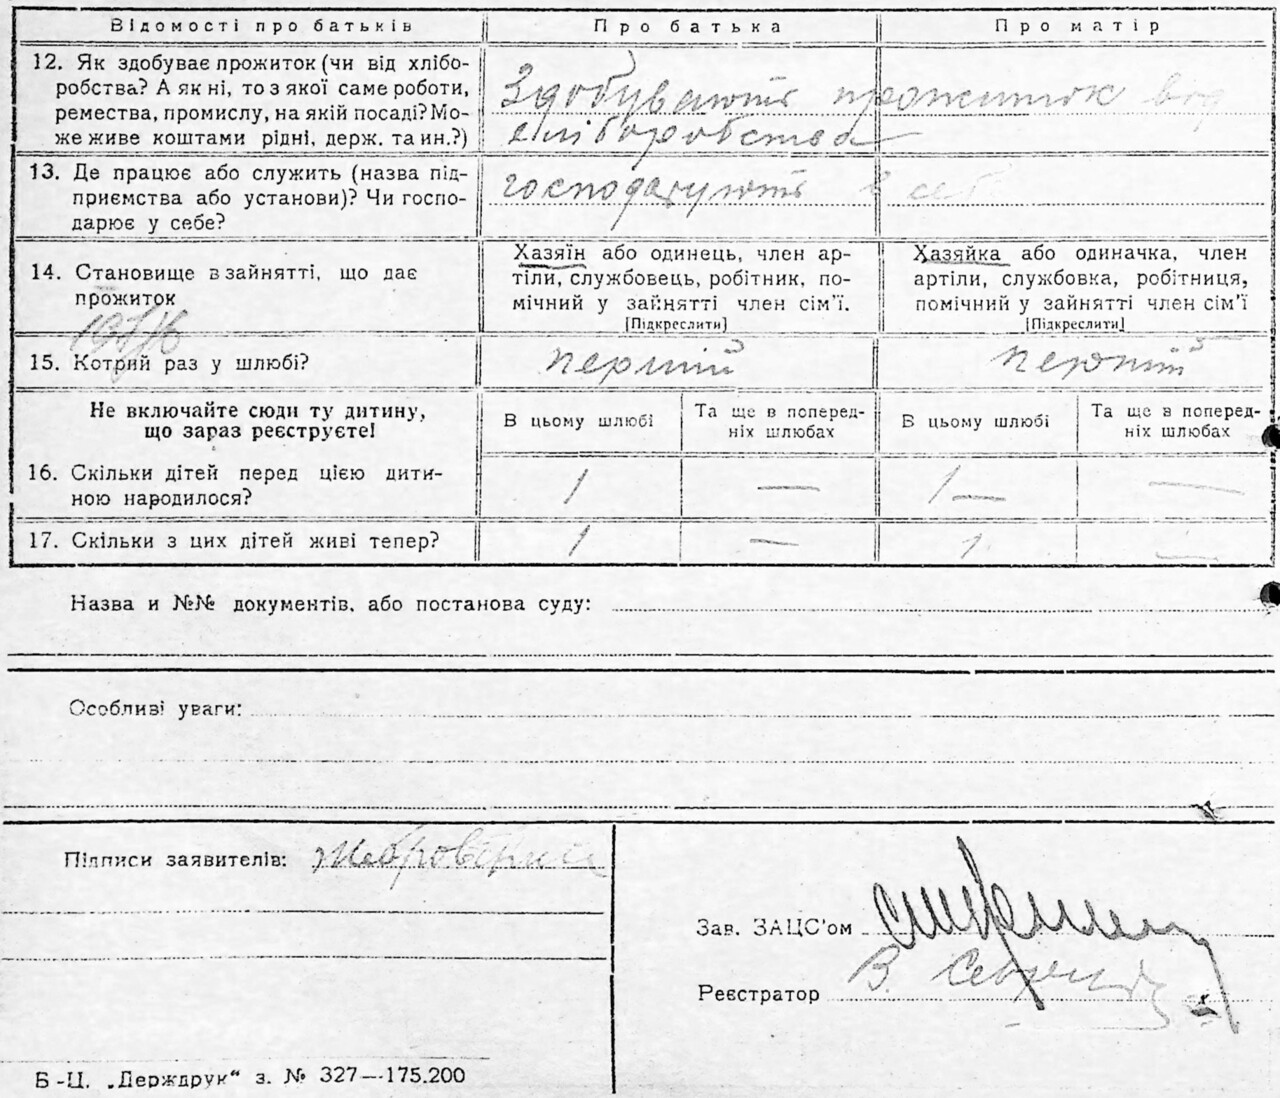 Відомості про батьків
Про батька
Про матір
12. Як здобуває прожиток (чи від хлібо-
робства? А як ні, то з якої саме роботи,
ремества, промислу, на якій посаді? Мо-
же живе коштами рідні, держ. та ин.?)
Здобувають прожиток від
хліборобства
13. Де працює або служить (назва під-
приємства або установи)? Чи госпо-
дарює у себе?
господарують в себе
14. Становище в зайнятті, що дає
прожиток
Хазяїн або одинець, член ар-
тіли, службовець, робітник, по-
мічний у зайнятті член сім'ї.
[Підкреслити]
Хазяйка або одиначка, член
артіли, службовка, робітниця,
помічний у зайнятті член сім'ї
[Підкреслити]
15. Котрий раз у шлюбі?
перший
перший
Не включайте сюди ту дитину,
що зараз реєструєте!
В цьому шлюбі
Та ще в поперед-
ніх шлюбах
В цьому шлюбі
Та ще в поперед-
ніх шлюбах
16. Скільки дітей перед цією дити-
ною народилося?
1 — 1 — —
17. Скільки з цих дітей живі тепер?
1 — 1 —
Назва и №№ документів, або постанова суду:
Особливі уваги:
Підписи заявителів:
Зав. ЗАЦС'ом
Реєстратор В.
Б-Ц. „Держдрук“ з. № 327—175.200